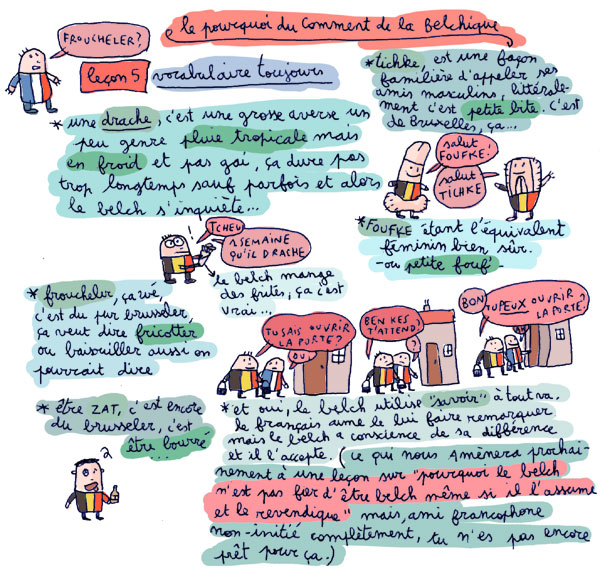 le pourquoi du Comment de la Belchique
FROUCHELER?
leçon 5 vocabulaire toujours
*une drache, c'est une grosse averse un
peu genre pluie tropicale mais
en froid et pas gai, ça dure pas
trop longtemps sauf parfois et alors
le belch s'inquiète...
*tichke, est une façon
familière d'appeler ses
amis masculins, littérale-
ment c'est petite bite. C'est
de Bruxelles, ça...
salut
FOUFKE.
salut
TICHKE
*FOUFKE étant l'équivalent
féminin bien sûr.
-ou petite fouf-
TCHEU
1 SEMAINE
QU'IL DRACHE
le belch mange
des frites, ça c'est
vrai...
*froucheler, ça vé,
c'est du pur brusseler,
ça veut dire fricotter
ou baisouiller aussi on
pourrait dire
TU SAIS OUVRIR
LA PORTE?
OU
BEN KES
T'ATTEND?
?
BON
TU PEUX OUVRIR
LA PORTE?
*être ZAT, c'est encore
du brusseler, c'est
être bourré
...
*et oui, le belch utilise "savoir" à tout va.
le français aime le lui faire remarquer
mais le belch a conscience de sa différence
et il l'accepte. (ce qui nous amènera prochai-
nement à une leçon sur "pourquoi le belch
n'est pas fier d'être belch même si il l'assume
et le revendique" mais, ami francophone
non-initié complètement, tu n'es pas encore
prêt pour ça.)